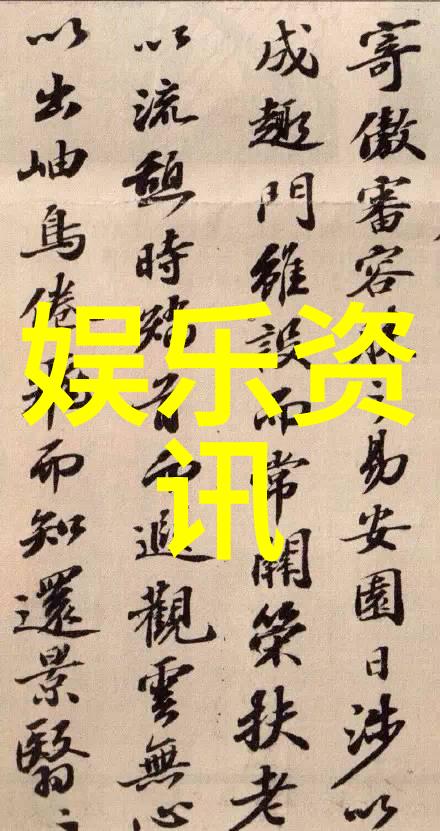 寄傲審容膝之易安園日涉以
成趣門雖設而常關策扶老
以流憩時矯首而遐觀雲無心
以出岫鳥倦飛而知還景翳
娱乐资
讯